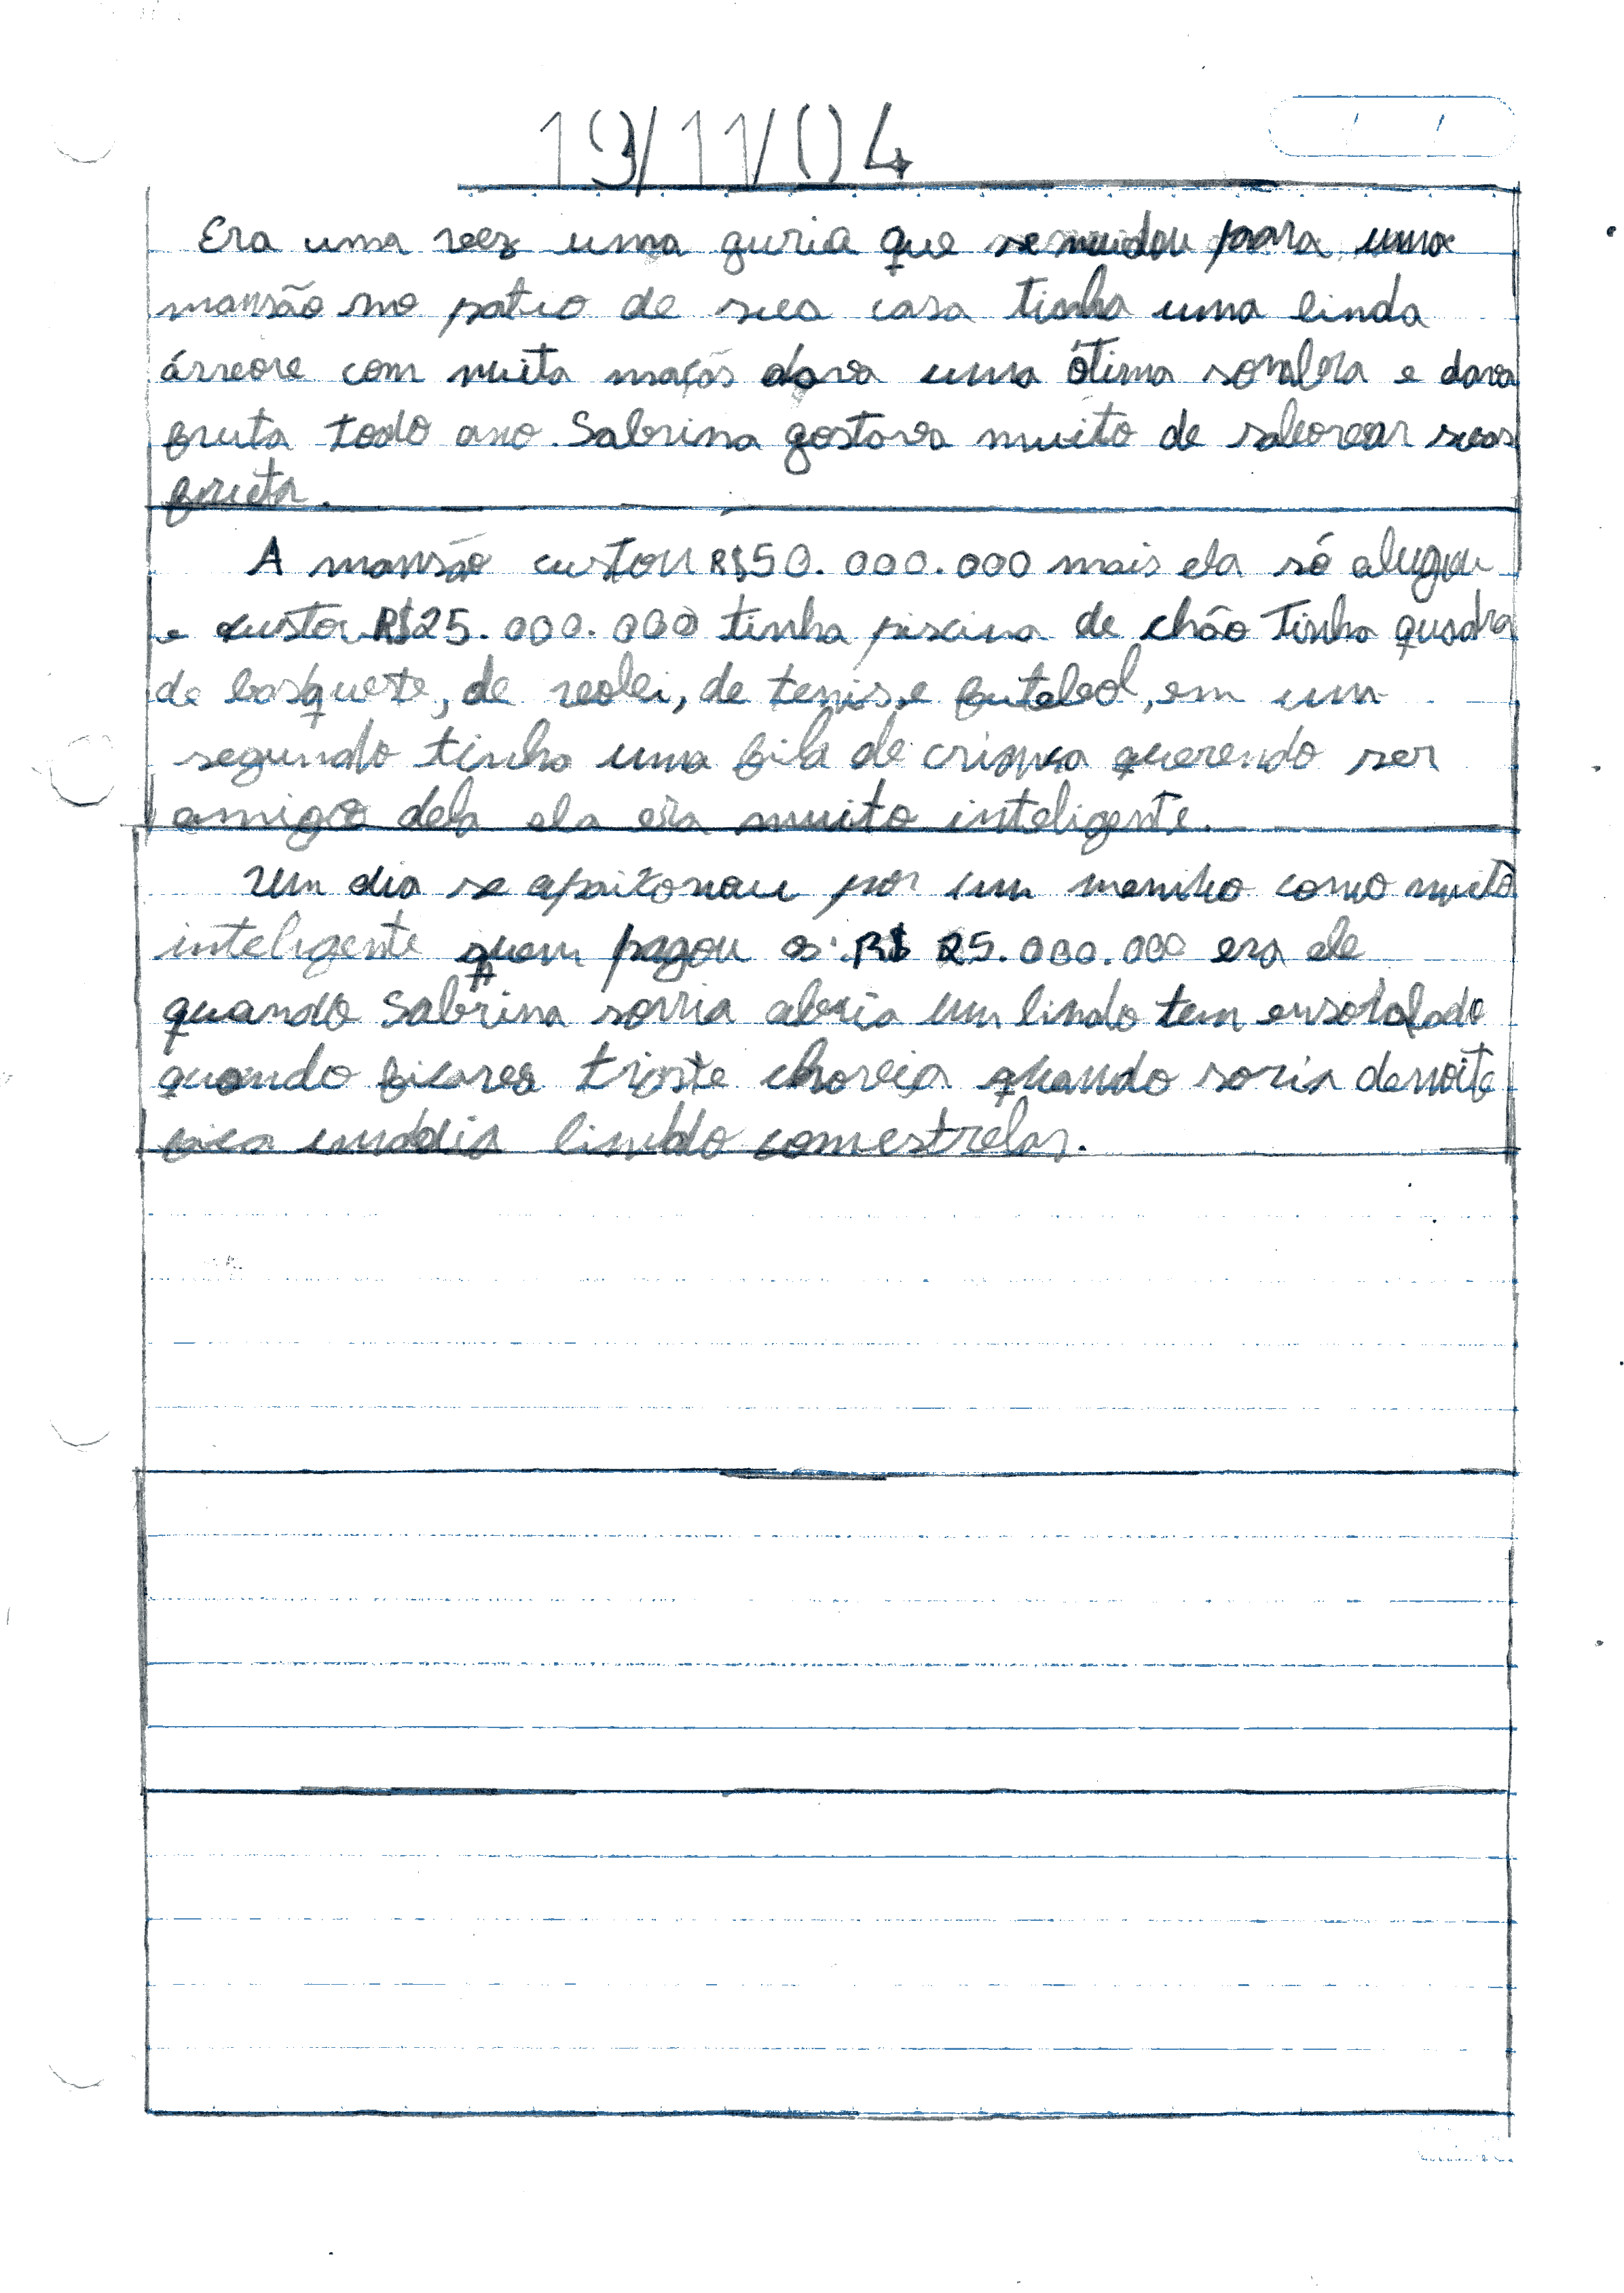 19/11/04
Era uma vez uma guria que se mudou para uma
mansão no patio de sua casa tinha uma linda
árvore com muita maçãs dava uma ótima sombra e dava
fruta todo ano. Sabrina gostava muito de saborear suas
fruta.
A mansão custou R$50.000.000 mais ela só alugou
e custou R$25.000.000 tinha piscina de chão tinha quadra
de basquete, de volei, de tenis, e futebol, em um
segundo tinha uma fila de criança querendo ser
amigo dela ela era muito inteligente.
Um dia se apaixonou por um menino como muito
inteligente quem pagou os R$ 25.000.000 era ele
quando Sabrina sorria abria um lindo tem ensolalado
quando ficava triste chovia quando soria denoite
fica umdia lindo comestrelas.